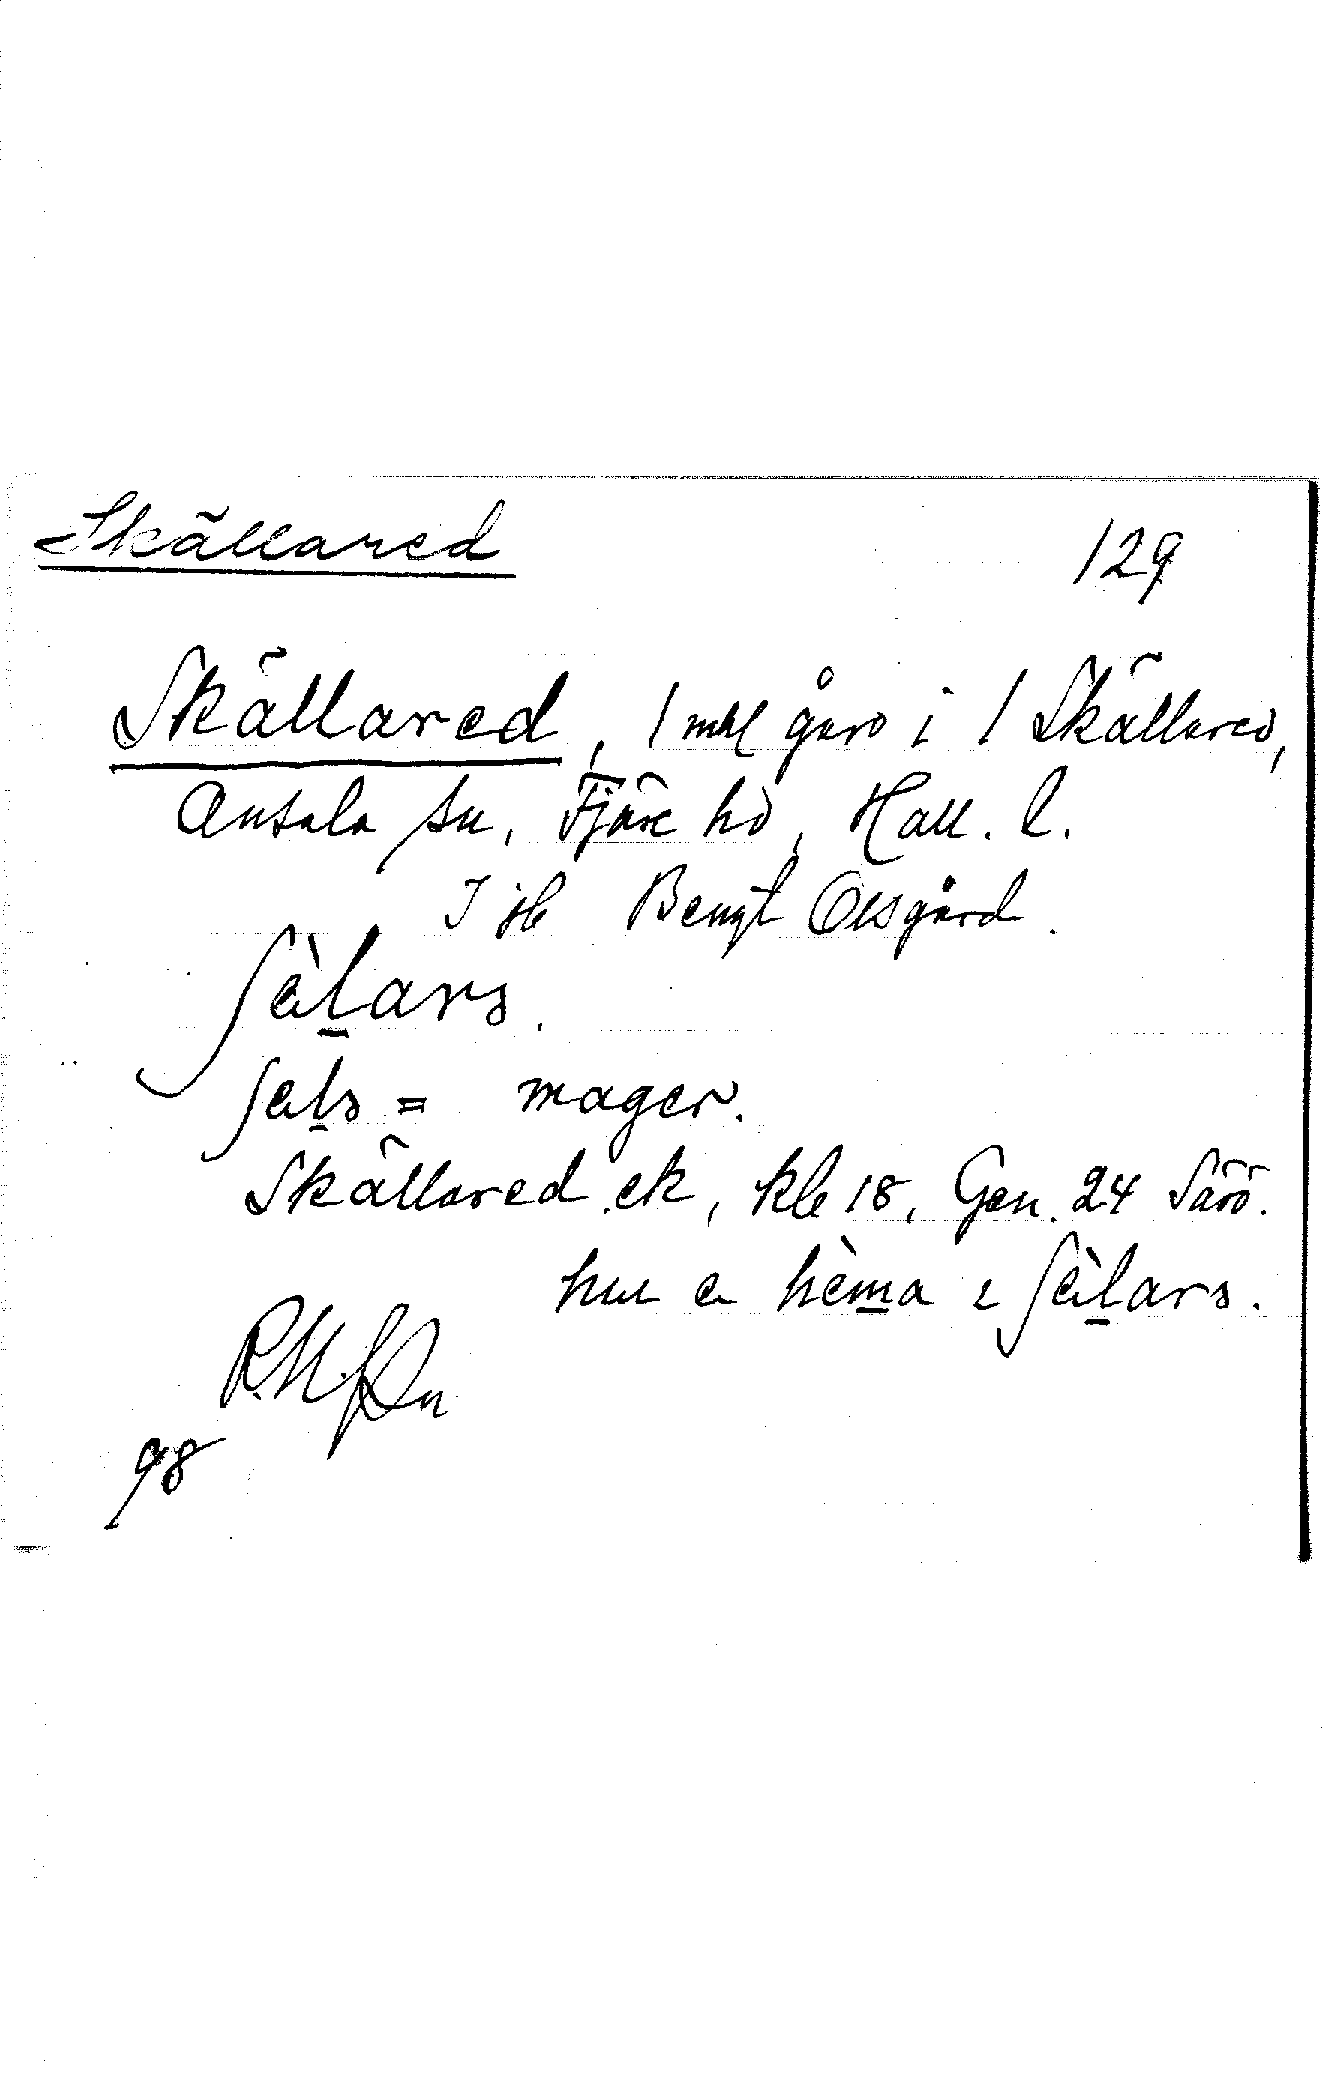 Skällared 129
Skällared, 1 mtl gård i 1 Skällared,
Onsala sn, Fjäre hd, Hall. l.
Bengt Olsgård.
ʃàḻars.
ʃaḻs = mager.
Skällared ek, kbl 18, Gen. 24 Särö.
hu a hèma ɩ ʃàḻars.
98